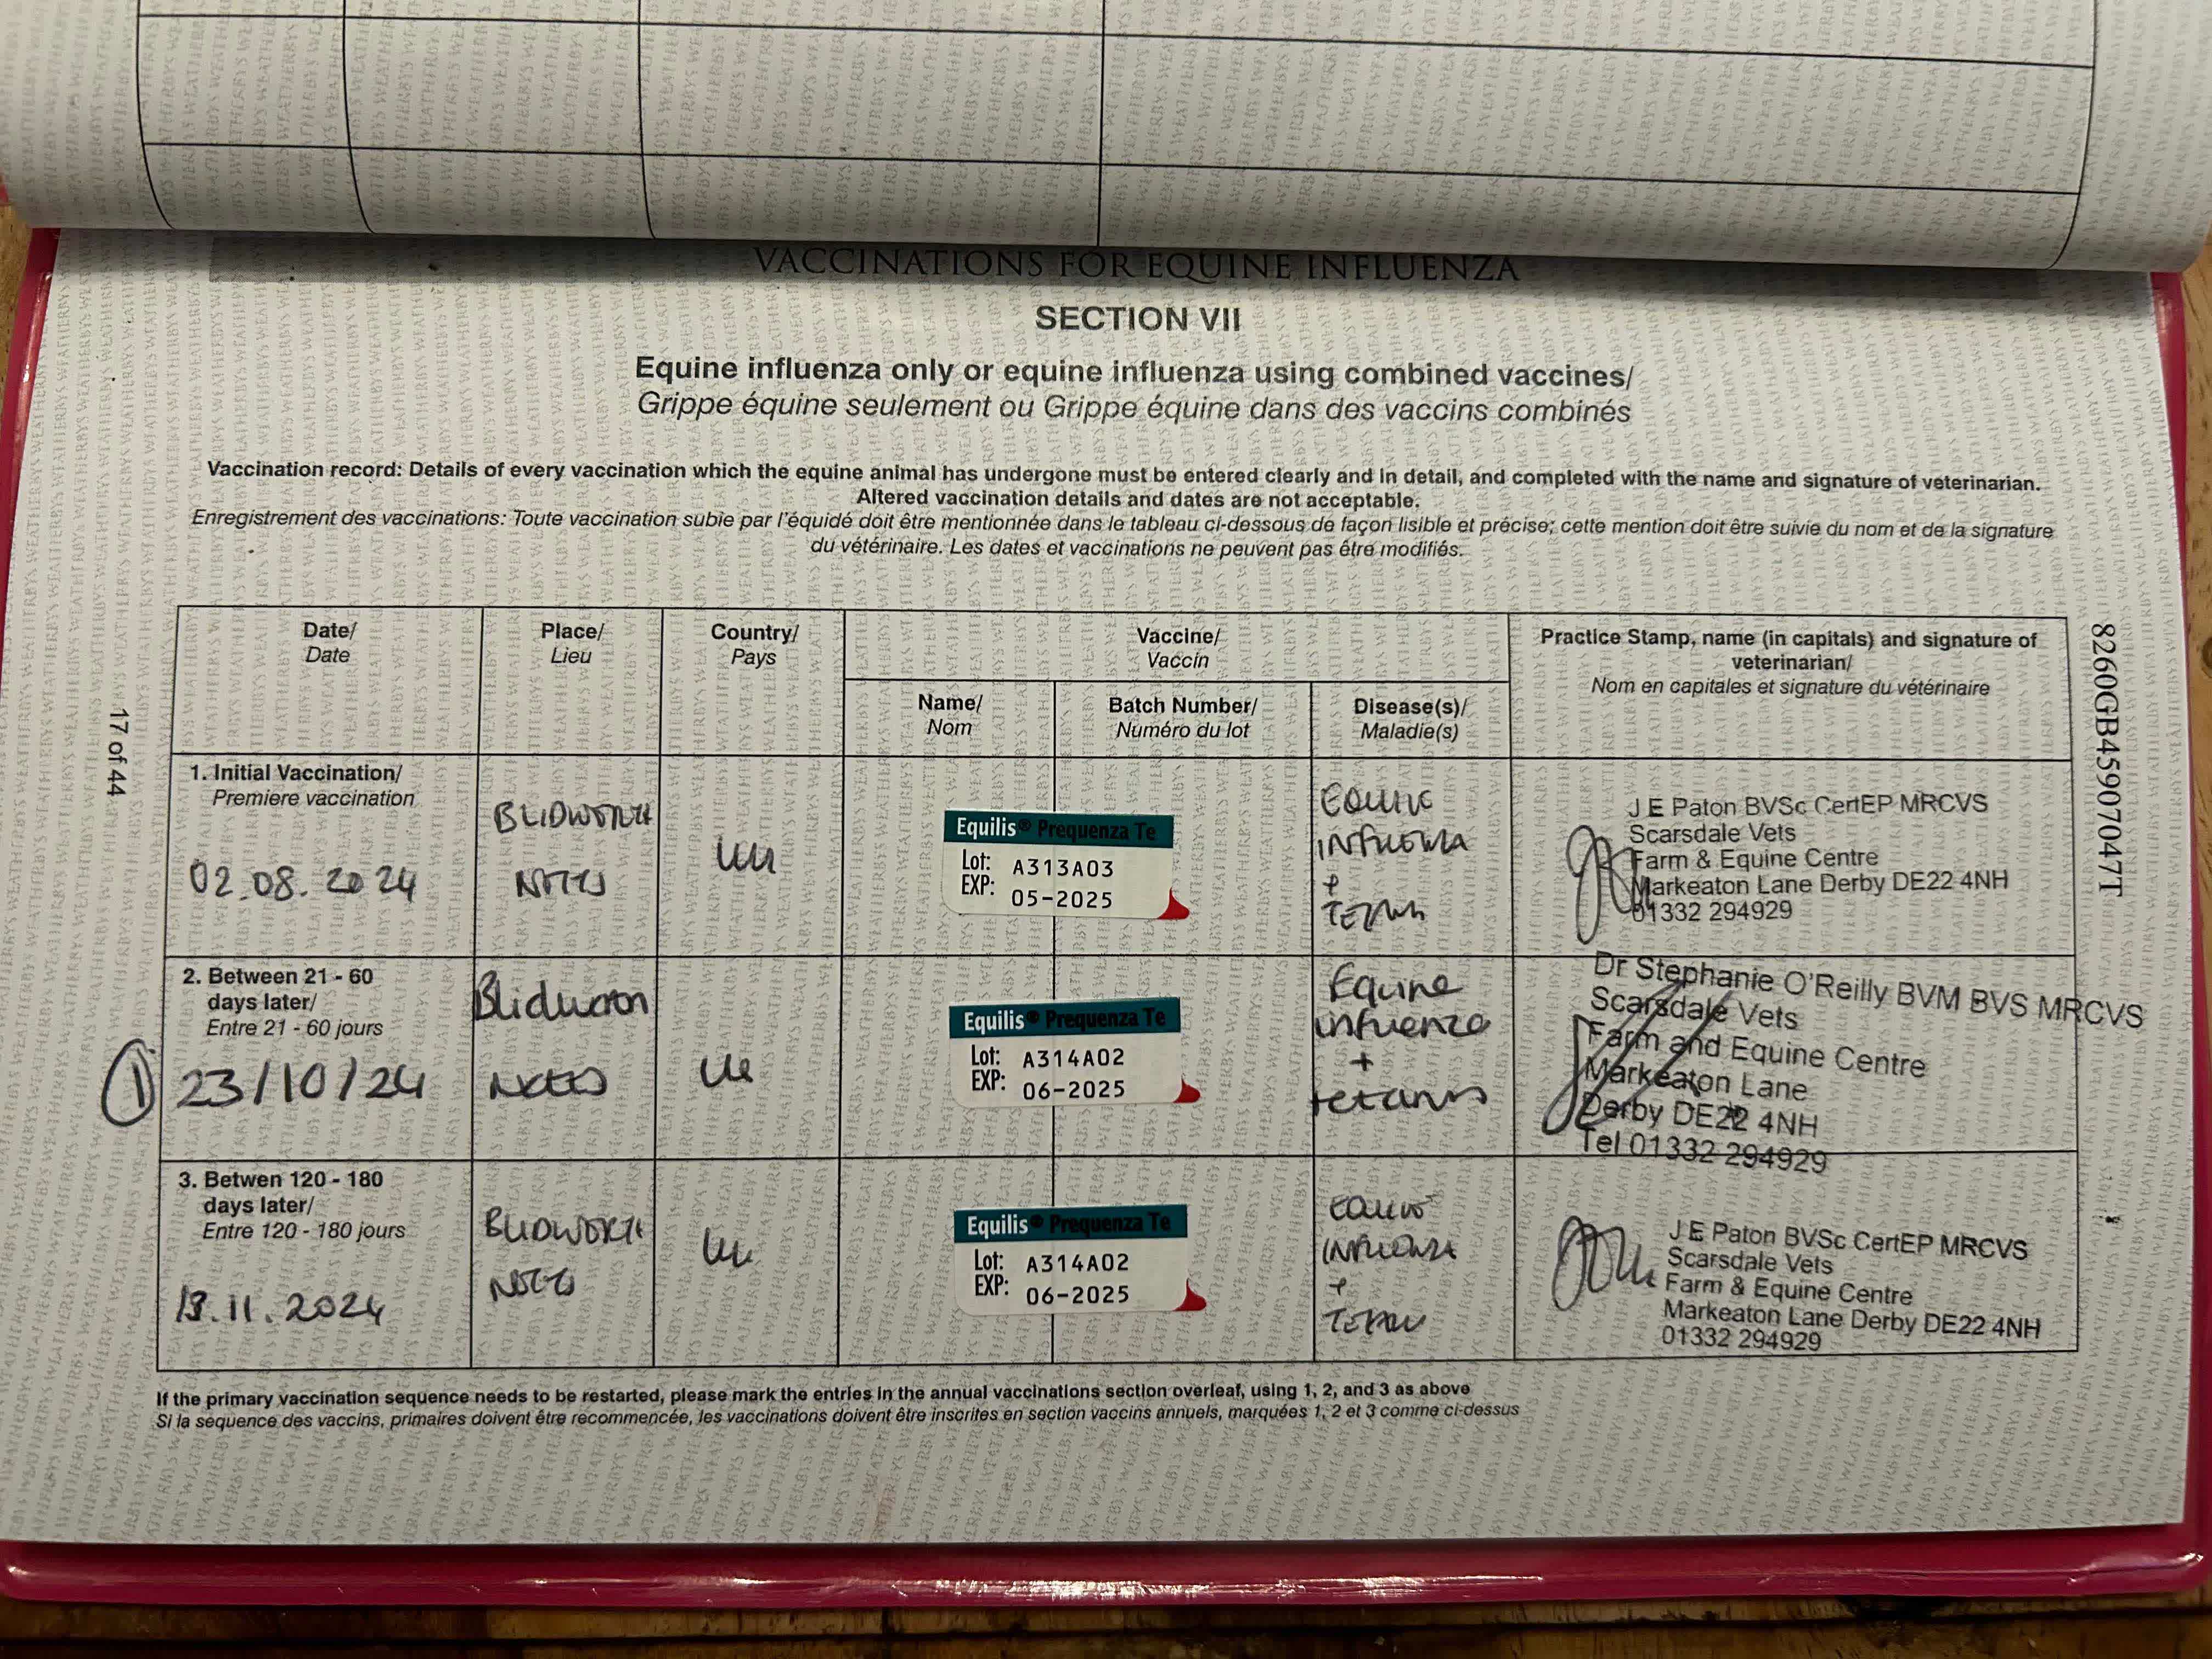 VACCINATIONS FOR EQUINE INFLUENZA
SECTION VII
Equine influenza only or equine influenza using combined vaccines/
Grippe équine seulement ou Grippe équine dans des vaccins combinés
Vaccination record: Details of every vaccination which the equine animal has undergone must be entered clearly and in detail, and completed with the name and signature of veterinarian.
Altered vaccination details and dates are not acceptable.
Enregistrement des vaccinations: Toute vaccination subie par l'équidé doit être mentionnée dans le tableau ci-dessous de façon lisible et précise; cette mention doit être suivie du nom et de la signature
du vétérinaire. Les dates et vaccinations ne peuvent pas être modifiés.
Date/
Date
Place/
Lieu
Country/
Pays
Vaccine/
Vaccin
Name/
Nom
Batch Number/
Numéro du lot
Disease(s)/
Maladie(s)
Practice Stamp, name (in capitals) and signature of
veterinarian/
Nom en capitales et signature du vétérinaire
1. Initial Vaccination/
Premiere vaccination
02.08.2024
BLIDWORTH
NOTTS
UK
Equilis® Prequenza Te
Lot: A313A03
EXP: 05-2025
EQUINE
INFLUENZA
+
J E Paton BVSc CertEP MRCVS
Scarsdale Vets
Farm & Equine Centre
Markeaton Lane Derby DE22 4NH
01332 294929
2. Between 21 - 60
days later/
Entre 21 - 60 jours
1
23/10/24
NOTTS
UK
Equilis® Prequenza Te
Lot: A314A02
EXP: 06-2025
Equine
influenza
+
tetanus
Dr Stephanie O'Reilly BVM BVS MRCVS
Scarsdale Vets
Farm and Equine Centre
Markeaton Lane
Derby DE22 4NH
Tel 01332 294929
3. Betwen 120 - 180
days later/
Entre 120 - 180 jours
.11.2024
BLIDWORTH
NOTTS
UK
Equilis® Prequenza Te
Lot: A314A02
EXP: 06-2025
INFLUENZA
+
J E Paton BVSc CertEP MRCVS
Scarsdale Vets
Farm & Equine Centre
Markeaton Lane Derby DE22 4NH
01332 294929
If the primary vaccination sequence needs to be restarted, please mark the entries in the annual vaccinations section overleaf, using 1, 2, and 3 as above
Si la séquence des vaccins, primaires doivent être recommencée, les vaccinations doivent être inscrites en section vaccins annuels, marquées 1, 2 et 3 comme ci-dessus
17 of 44
8260GB45907047T